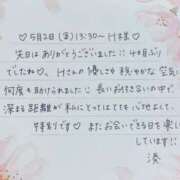 ♡5月2日(金)13:30〜H様♡
先日はありがとうございました!!4ヶ月ぶり
でしたね◡̈ Hさんの優しさや穏やかな空気に
何度も助けられました♡長いお付き合いの中で
深まる距離が私にとってはとても心地よくて、
特別です♡またお会いできる日を楽しみ
しています!!
湊